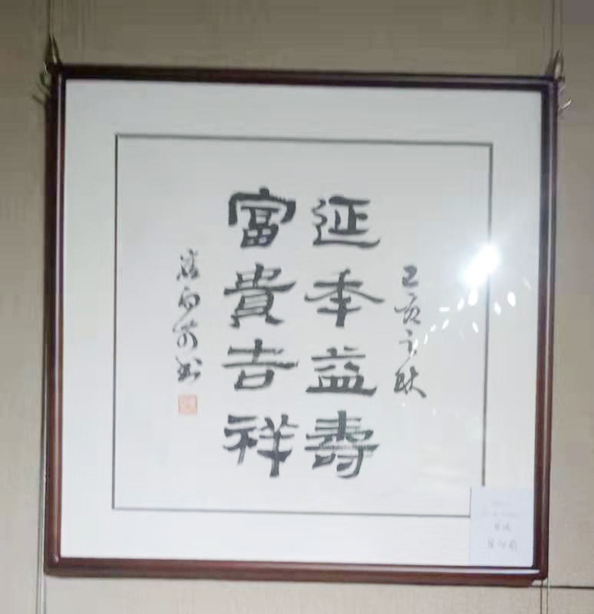 己亥之秋
延年益壽
富貴吉祥